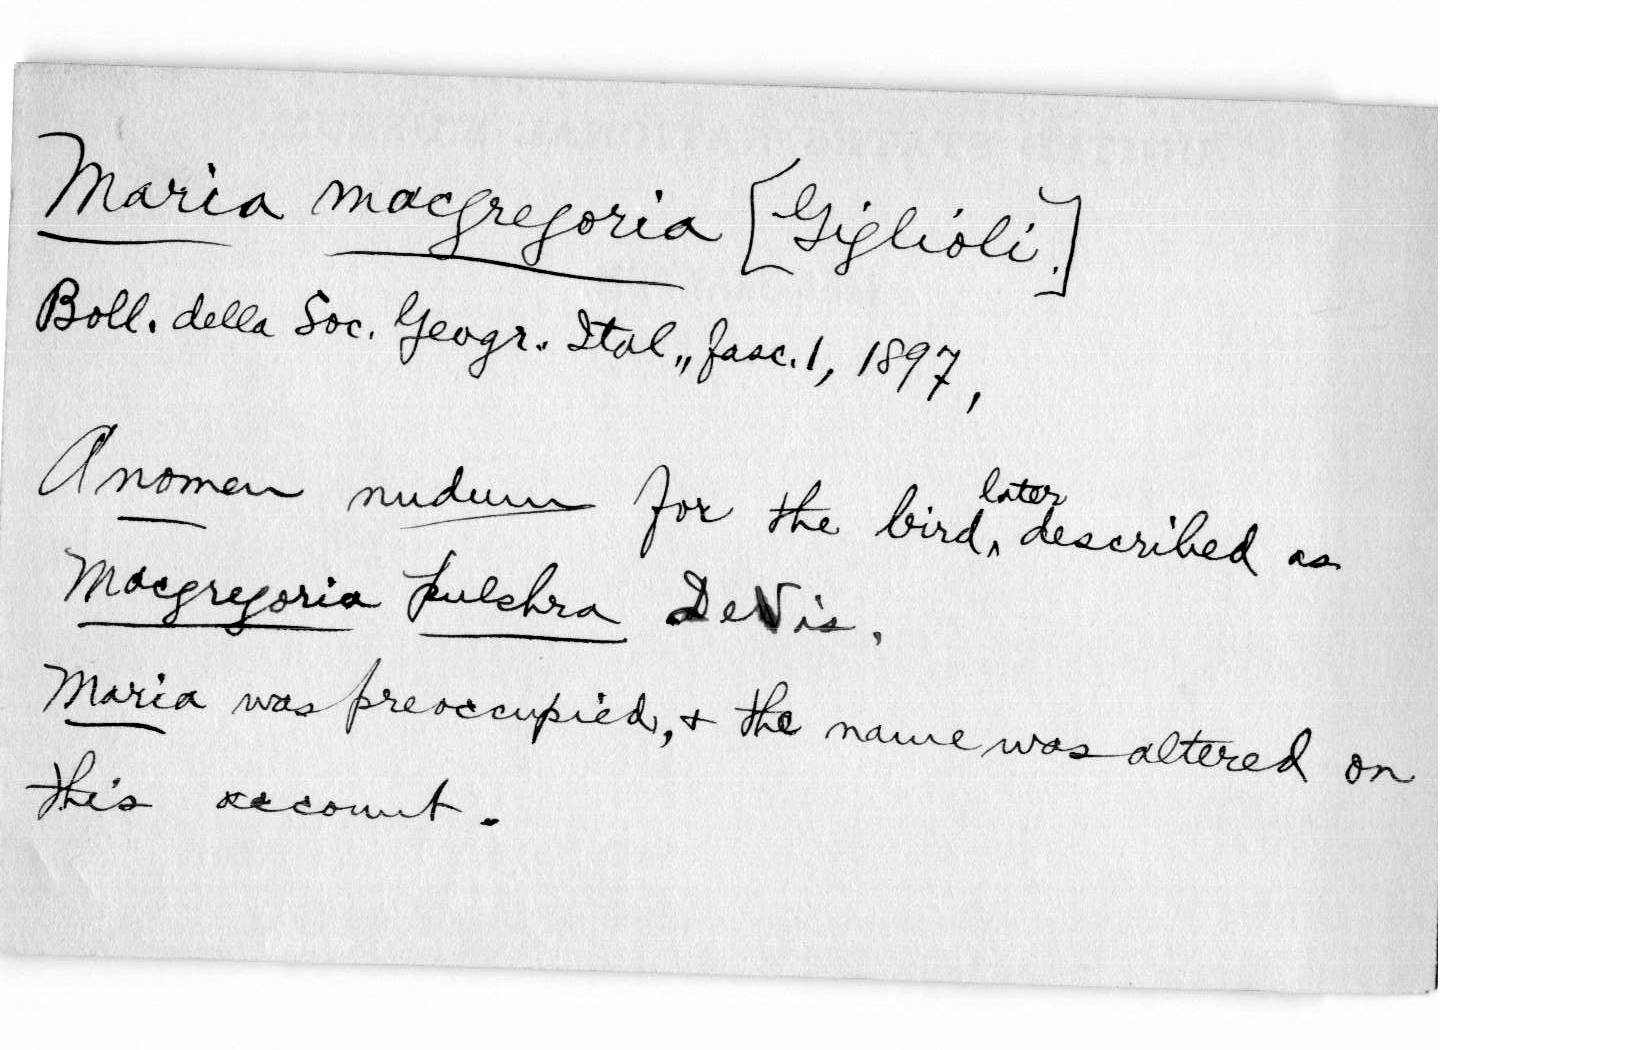 Maria macgregoria [Giglioli.]
Boll. della Soc. Geogr. Ital., fasc. 1, 1897,
A nomen nudum for the bird, later described as
Macgregoria pulchra DeVis.
Maria was preoccupied, & the name was altered on
this account.